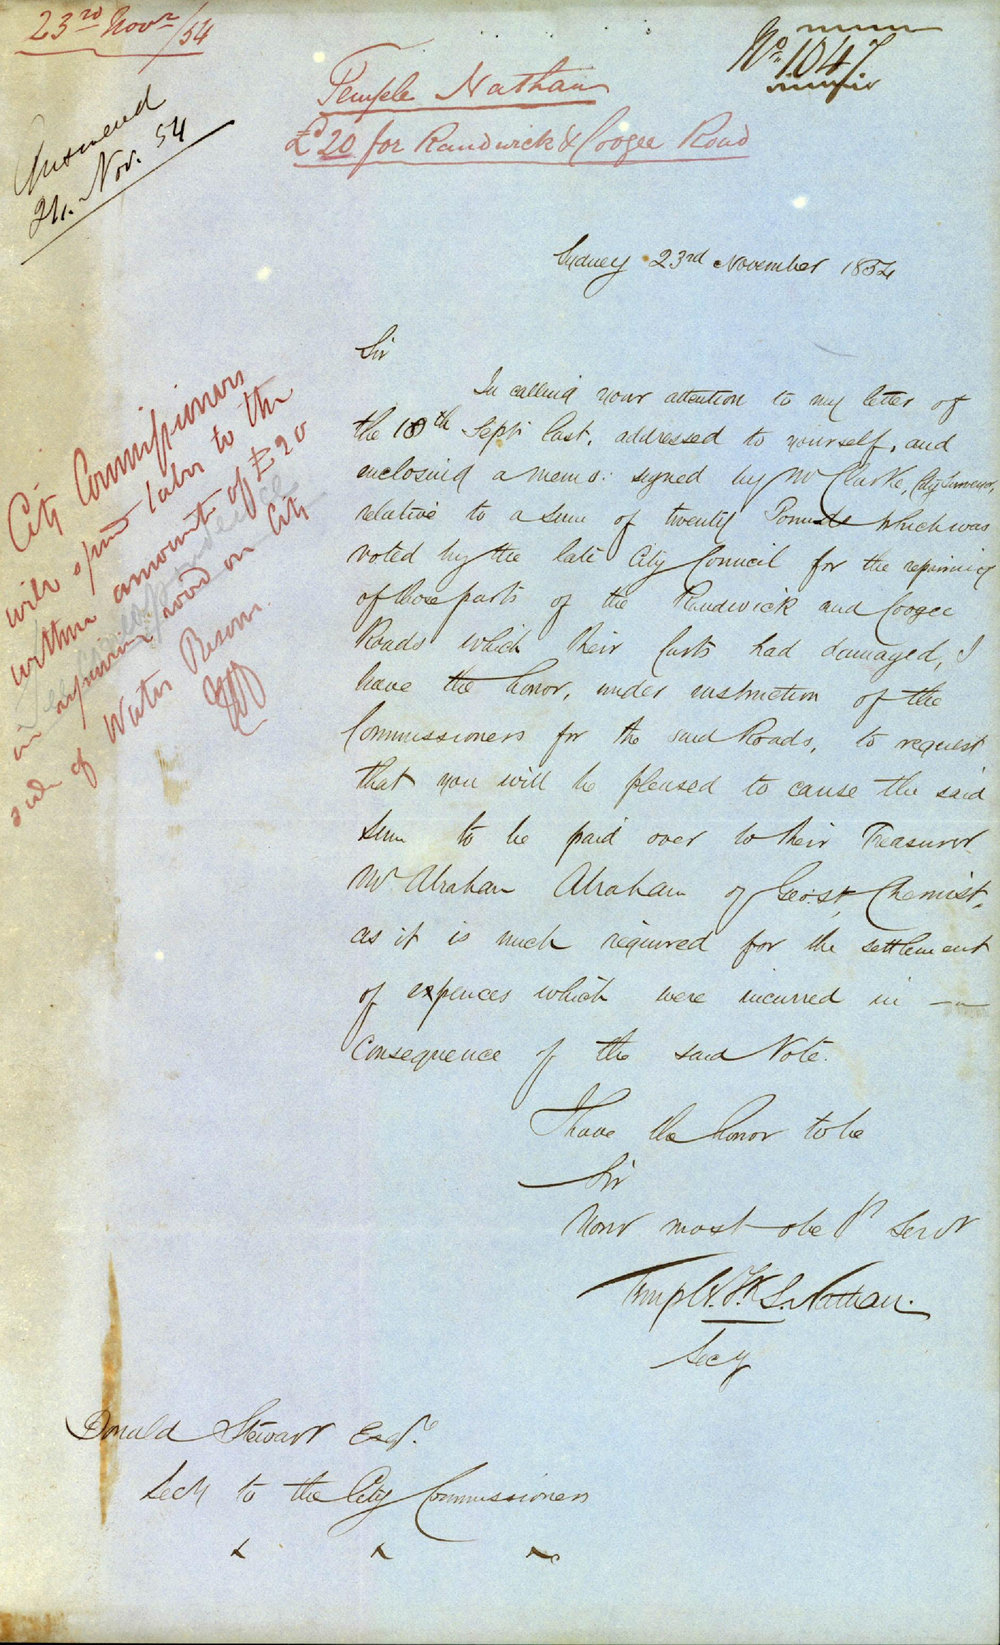 23rd Novr/54
No. 1047
Temple Nathan
£20 for Randwick & Coogee Road
Answered
24. Nov. 54
Sydney 23rd November 1854
Sir
In calling your attention to my letter of
the 18th Sept: last, addressed to yourself, and
enclosing a memo: signed by Mr Clarke, City Surveyor,
relative to a sum of twenty Pounds which was
voted by the late City Council for the repairing
of those parts of the Randwick and Coogee
Roads which their Carts had damaged, I
have the honor, under instruction of the
Commissioners for the said Roads, to request
that you will be pleased to cause the said
sum to be paid over to their Treasurer
Mr Abraham Abraham of Geo: st, Chemist,
as it is much required for the settlement
of expences which were incurred in
consequence of the said Vote.
I have the honor to be
Sir
Your most obet Servt
Temple F. S. Nathan.
Secy
City Commissioners
will spend labor to the
within amount of £20
in repairing road on City
side of Water Reserve.
Donald Stewart Esqre.
Secy to the City Commissioners